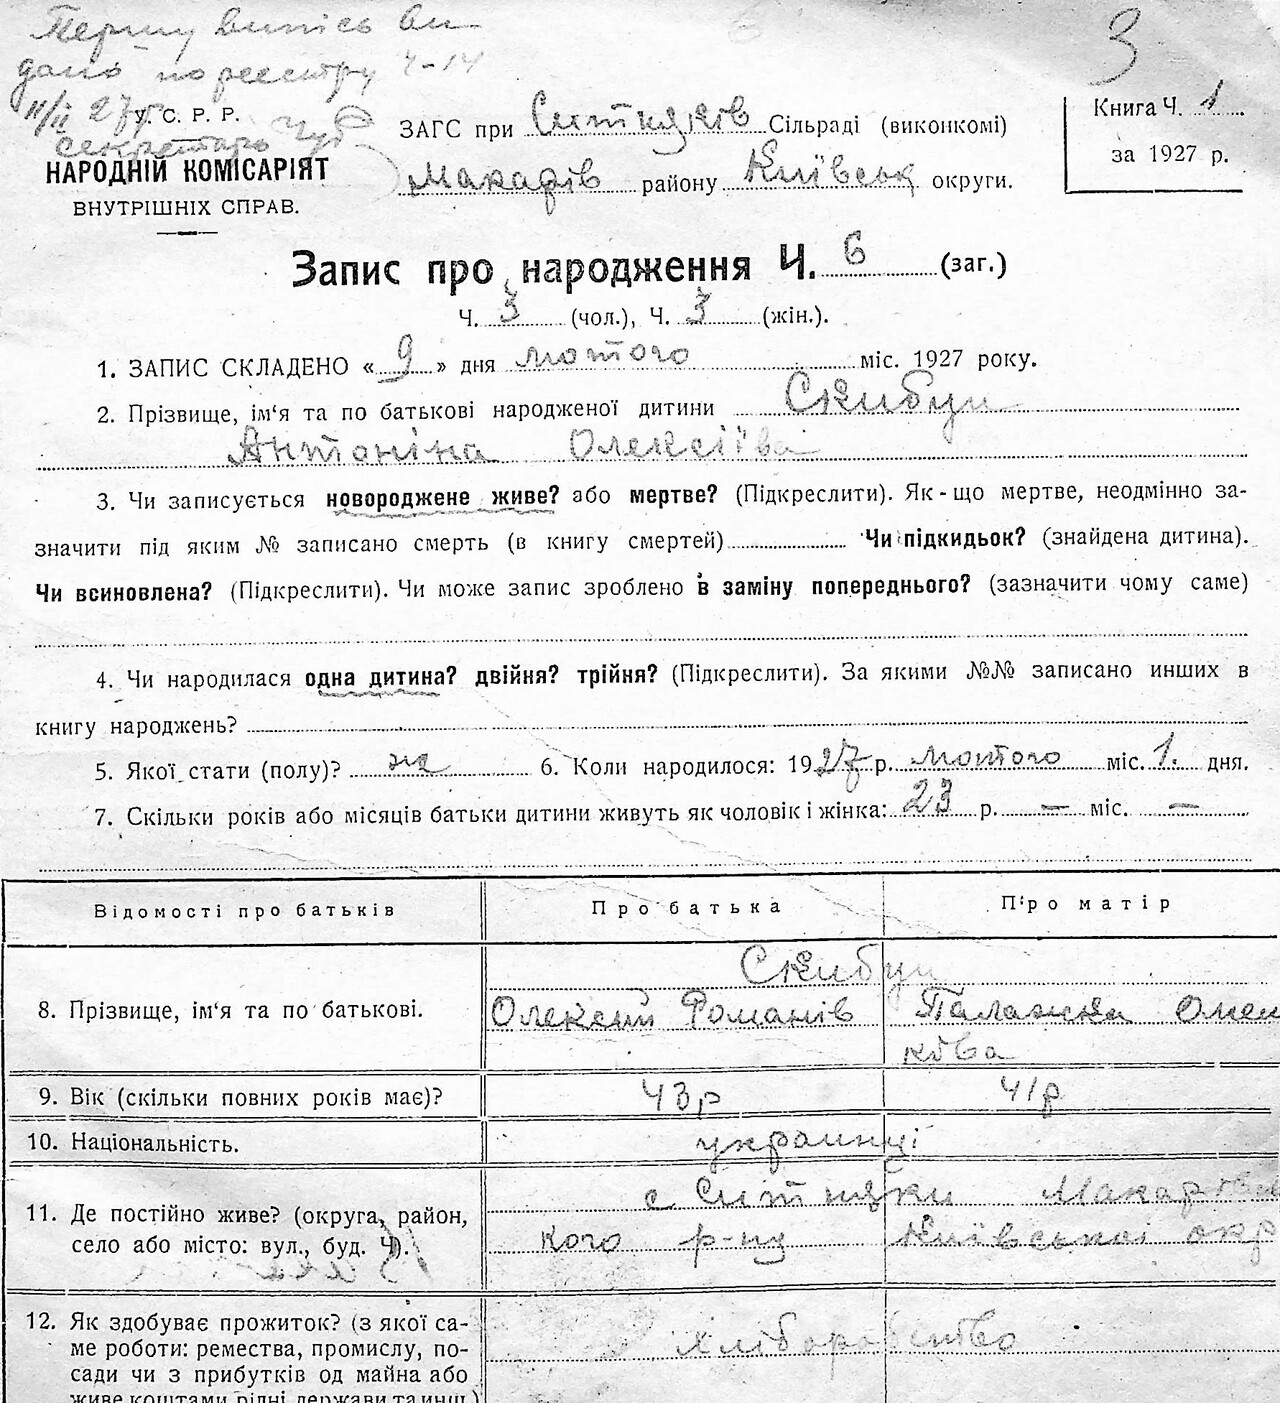 Першу випись ви
дано по реєстру Ч-14
11/II 27р
Секретарь
У. С. Р. Р.
НАРОДНІЙ КОМІСАРІЯТ
ВНУТРІШНІХ СПРАВ.
3
ЗАГС при Ситняків Сільраді (виконкомі)
Макарів району Київськ округи.
Книга Ч. 1
за 1927 р.
Запис про народження Ч. 6 (заг.)
Ч. 3 (чол.), Ч. 3 (жін.).
1. ЗАПИС СКЛАДЕНО « 9 » дня лютого міс. 1927 року.
2. Прізвище, ім‘я та по батькові народженої дитини Скибун
Антоніна Олексіївa
3. Чи записується новороджене живе? або мертве? (Підкреслити). Як-що мертве, неодмінно за-
значити під яким № записано смерть (в книгу смертей) Чи підкидьок? (знайдена дитина).
Чи всиновлена? (Підкреслити). Чи може запис зроблено в заміну попереднього? (зазначити чому саме)
4. Чи народилася одна дитина? двійня? трійня? (Підкреслити). За якими №№ записано инших в
книгу народжень?
5. Якої стати (полу)? ж 6. Коли народилося: 1927 р. лютого міс. 1. дня.
7. Скільки років або місяців батьки дитини живуть як чоловік і жінка: 23 р. — міс. —
Відомості про батьків Про батька Про матір
Скибун
8. Прізвище, ім‘я та по батькові. Олексій Романів Палажка Олек
ківа
9. Вік (скільки повних років має)? 43р 41р
10. Національність. украинці
11. Де постійно живе? (округа, район, с Ситняки Макарівс
село або місто: вул., буд. Ч). кого р-ну Київської окр
12. Як здобуває прожиток? (з якої са- хліборобство
ме роботи: ремества, промислу, по-
сади чи з прибутків од майна або
живе коштами рідні, держави та инш.)